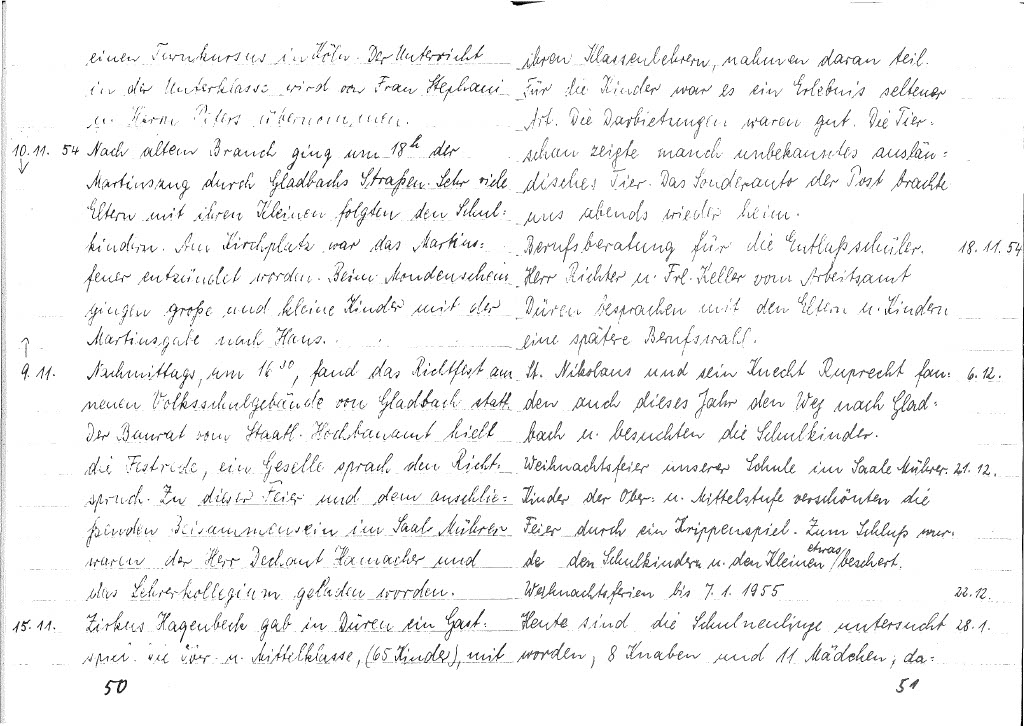 einen Turnkursus in Köln. Der Unterricht
in der Unterklasse wird von Frau Stephani
u. Herrn Peters übernommen.
10.11. 54 Nach altem Brauch ging um 18h der
Martinszug durch Gladbachs Straßen. Sehr viele
Eltern mit ihren Kleinen folgten den Schul-
kindern. Am Kirchplatz war das Martins-
feuer entzündet worden. Beim Mondenschein
gingen große und kleine Kinder mit der
Martinsgabe nach Haus.
9.11. Nachmittags, um 16 30, fand das Richtfest am
neuen Volksschulgebäude von Gladbach statt.
Der Baurat vom Staatl. Hochbauamt hielt
die Festrede, ein Geselle sprach den Richt-
spruch. Zu dieser Feier und dem anschlie-
ßenden Beisammensein im Saale Mührer
waren der Herr Dechant Hamacher und
das Lehrerkollegium geladen worden.
15.11. Zirkus Hagenbeck gab in Düren ein Gast-
spiel. Die Ober- u. Mittelklasse, (65 Kinder), mit
50
ihren Klassenlehrern, nahmen daran teil.
Für die Kinder war es ein Erlebnis seltener
Art. Die Darbietungen waren gut. Die Tier-
schau zeigte manch unbekanntes auslän-
disches Tier. Das Sonderauto der Post brachte
uns abends wieder heim.
Berufsberatung für die Entlaßschüler. 18.11.54
Herr Richter u. Frl. Keller vom Arbeitsamt
Düren besprachen mit den Eltern u. Kindern
eine spätere Berufswahl.
St. Nikolaus und sein Knecht Ruprecht fan- 6.12.
den auch dieses Jahr den Weg nach Glad-
bach u. besuchten die Schulkinder.
Weihnachtsfeier unserer Schule im Saale Mührer. 21.12.
Kinder der Ober- u. Mittelstufe verschönten die
Feier durch ein Krippenspiel. Zum Schluß wur-
de den Schulkindern u. den Kleinen etwas beschert.
Weihnachtsferien bis 7.1.1955 22.12.
Heute sind die Schulneulinge untersucht 28.1.
worden, 8 Knaben und 11 Mädchen, da-
51